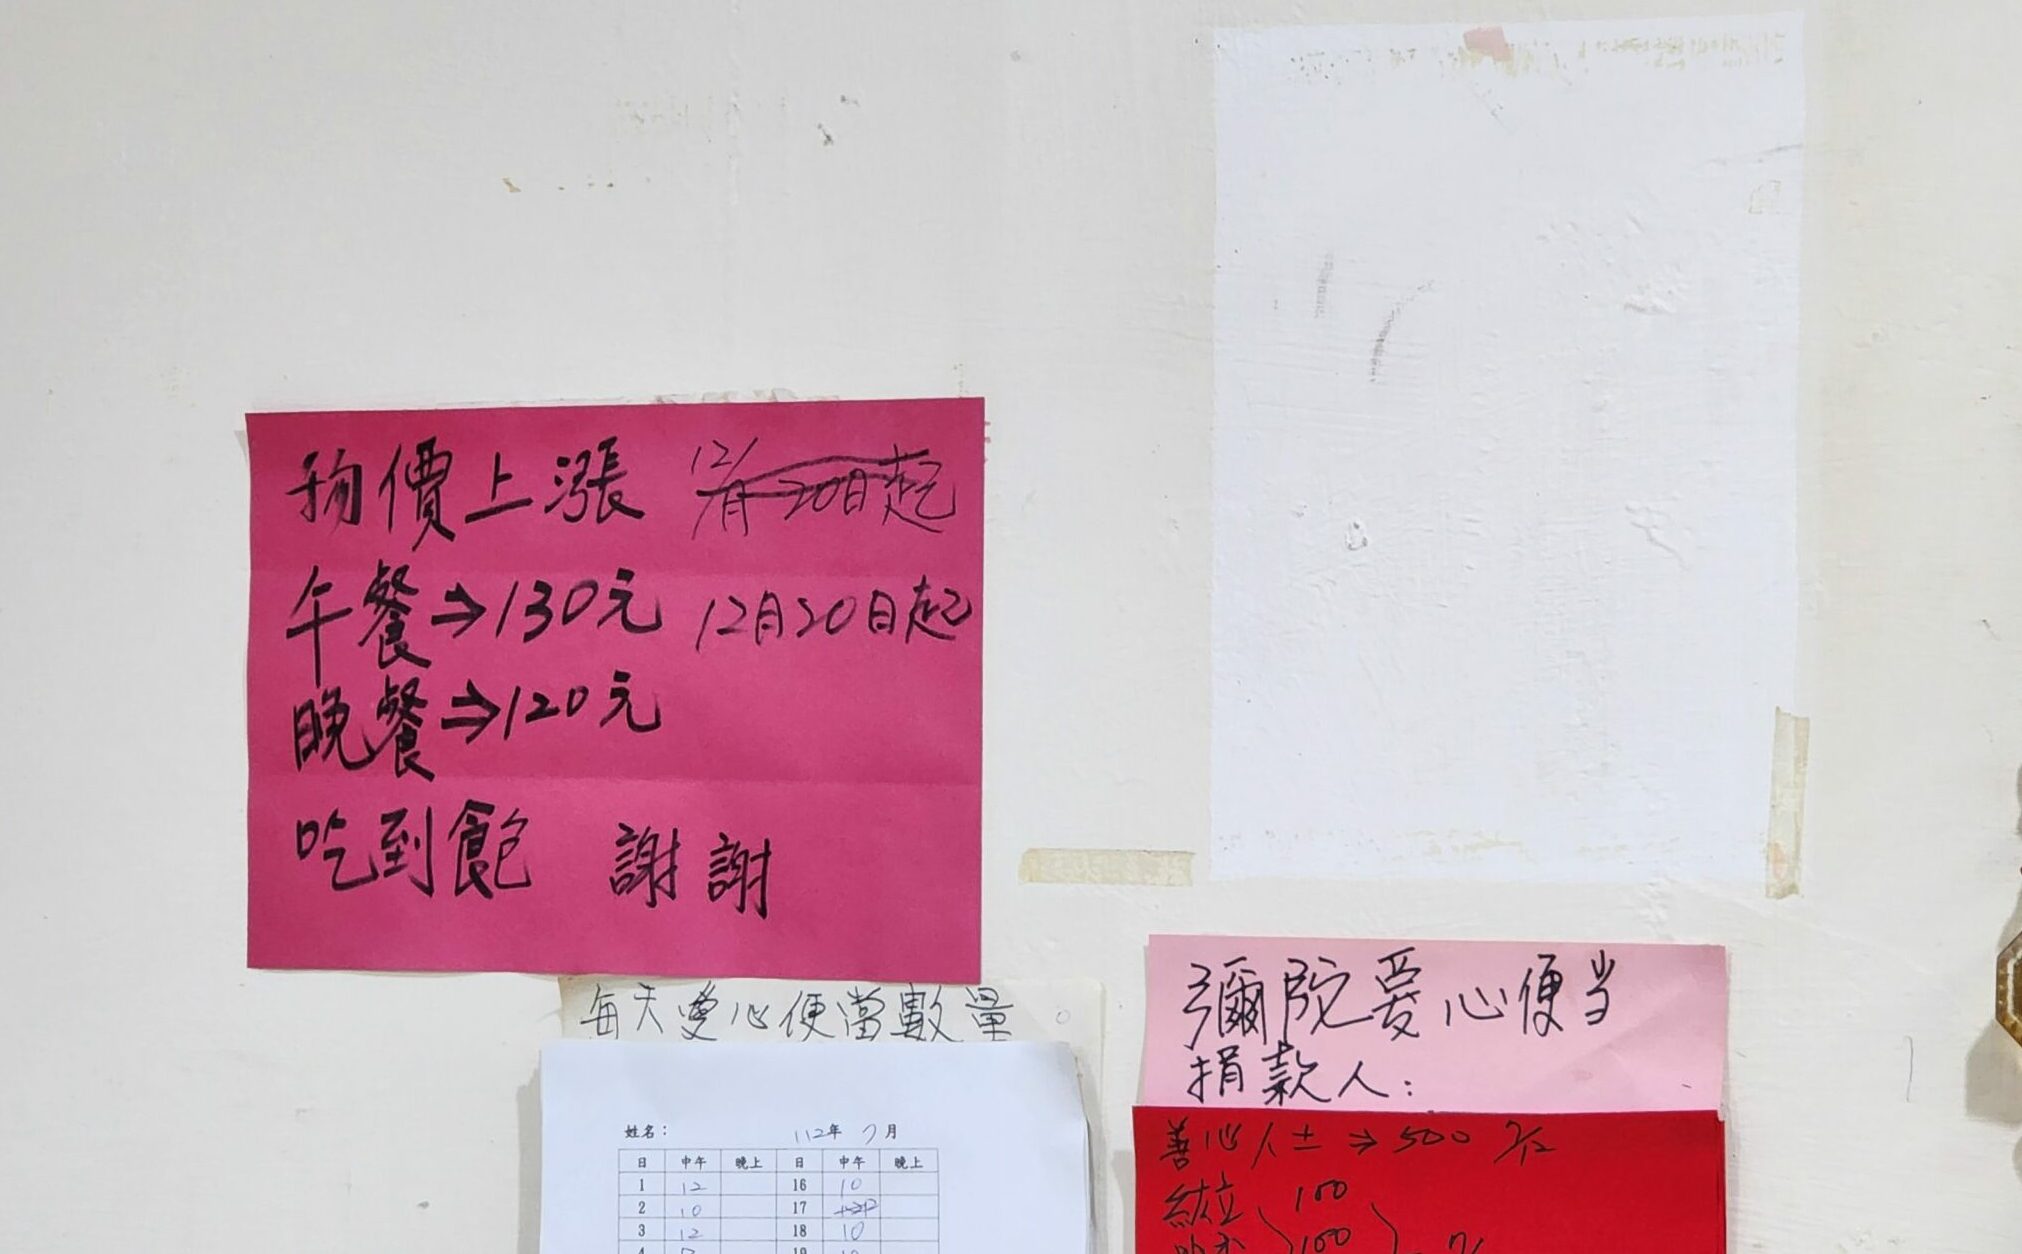 物價上漲 12/月20日起
午餐⇒130元 12月20日起
晚餐⇒120元
吃到飽 謝謝
每天愛心便當數量
姓名： 112年 7月
日 中午 晚上 日 中午 晚上
1 12 16 10
2 10 17
3 12 18 10
彌陀爱心便当
捐款人：
善心人士⇒500 7/12
100
100